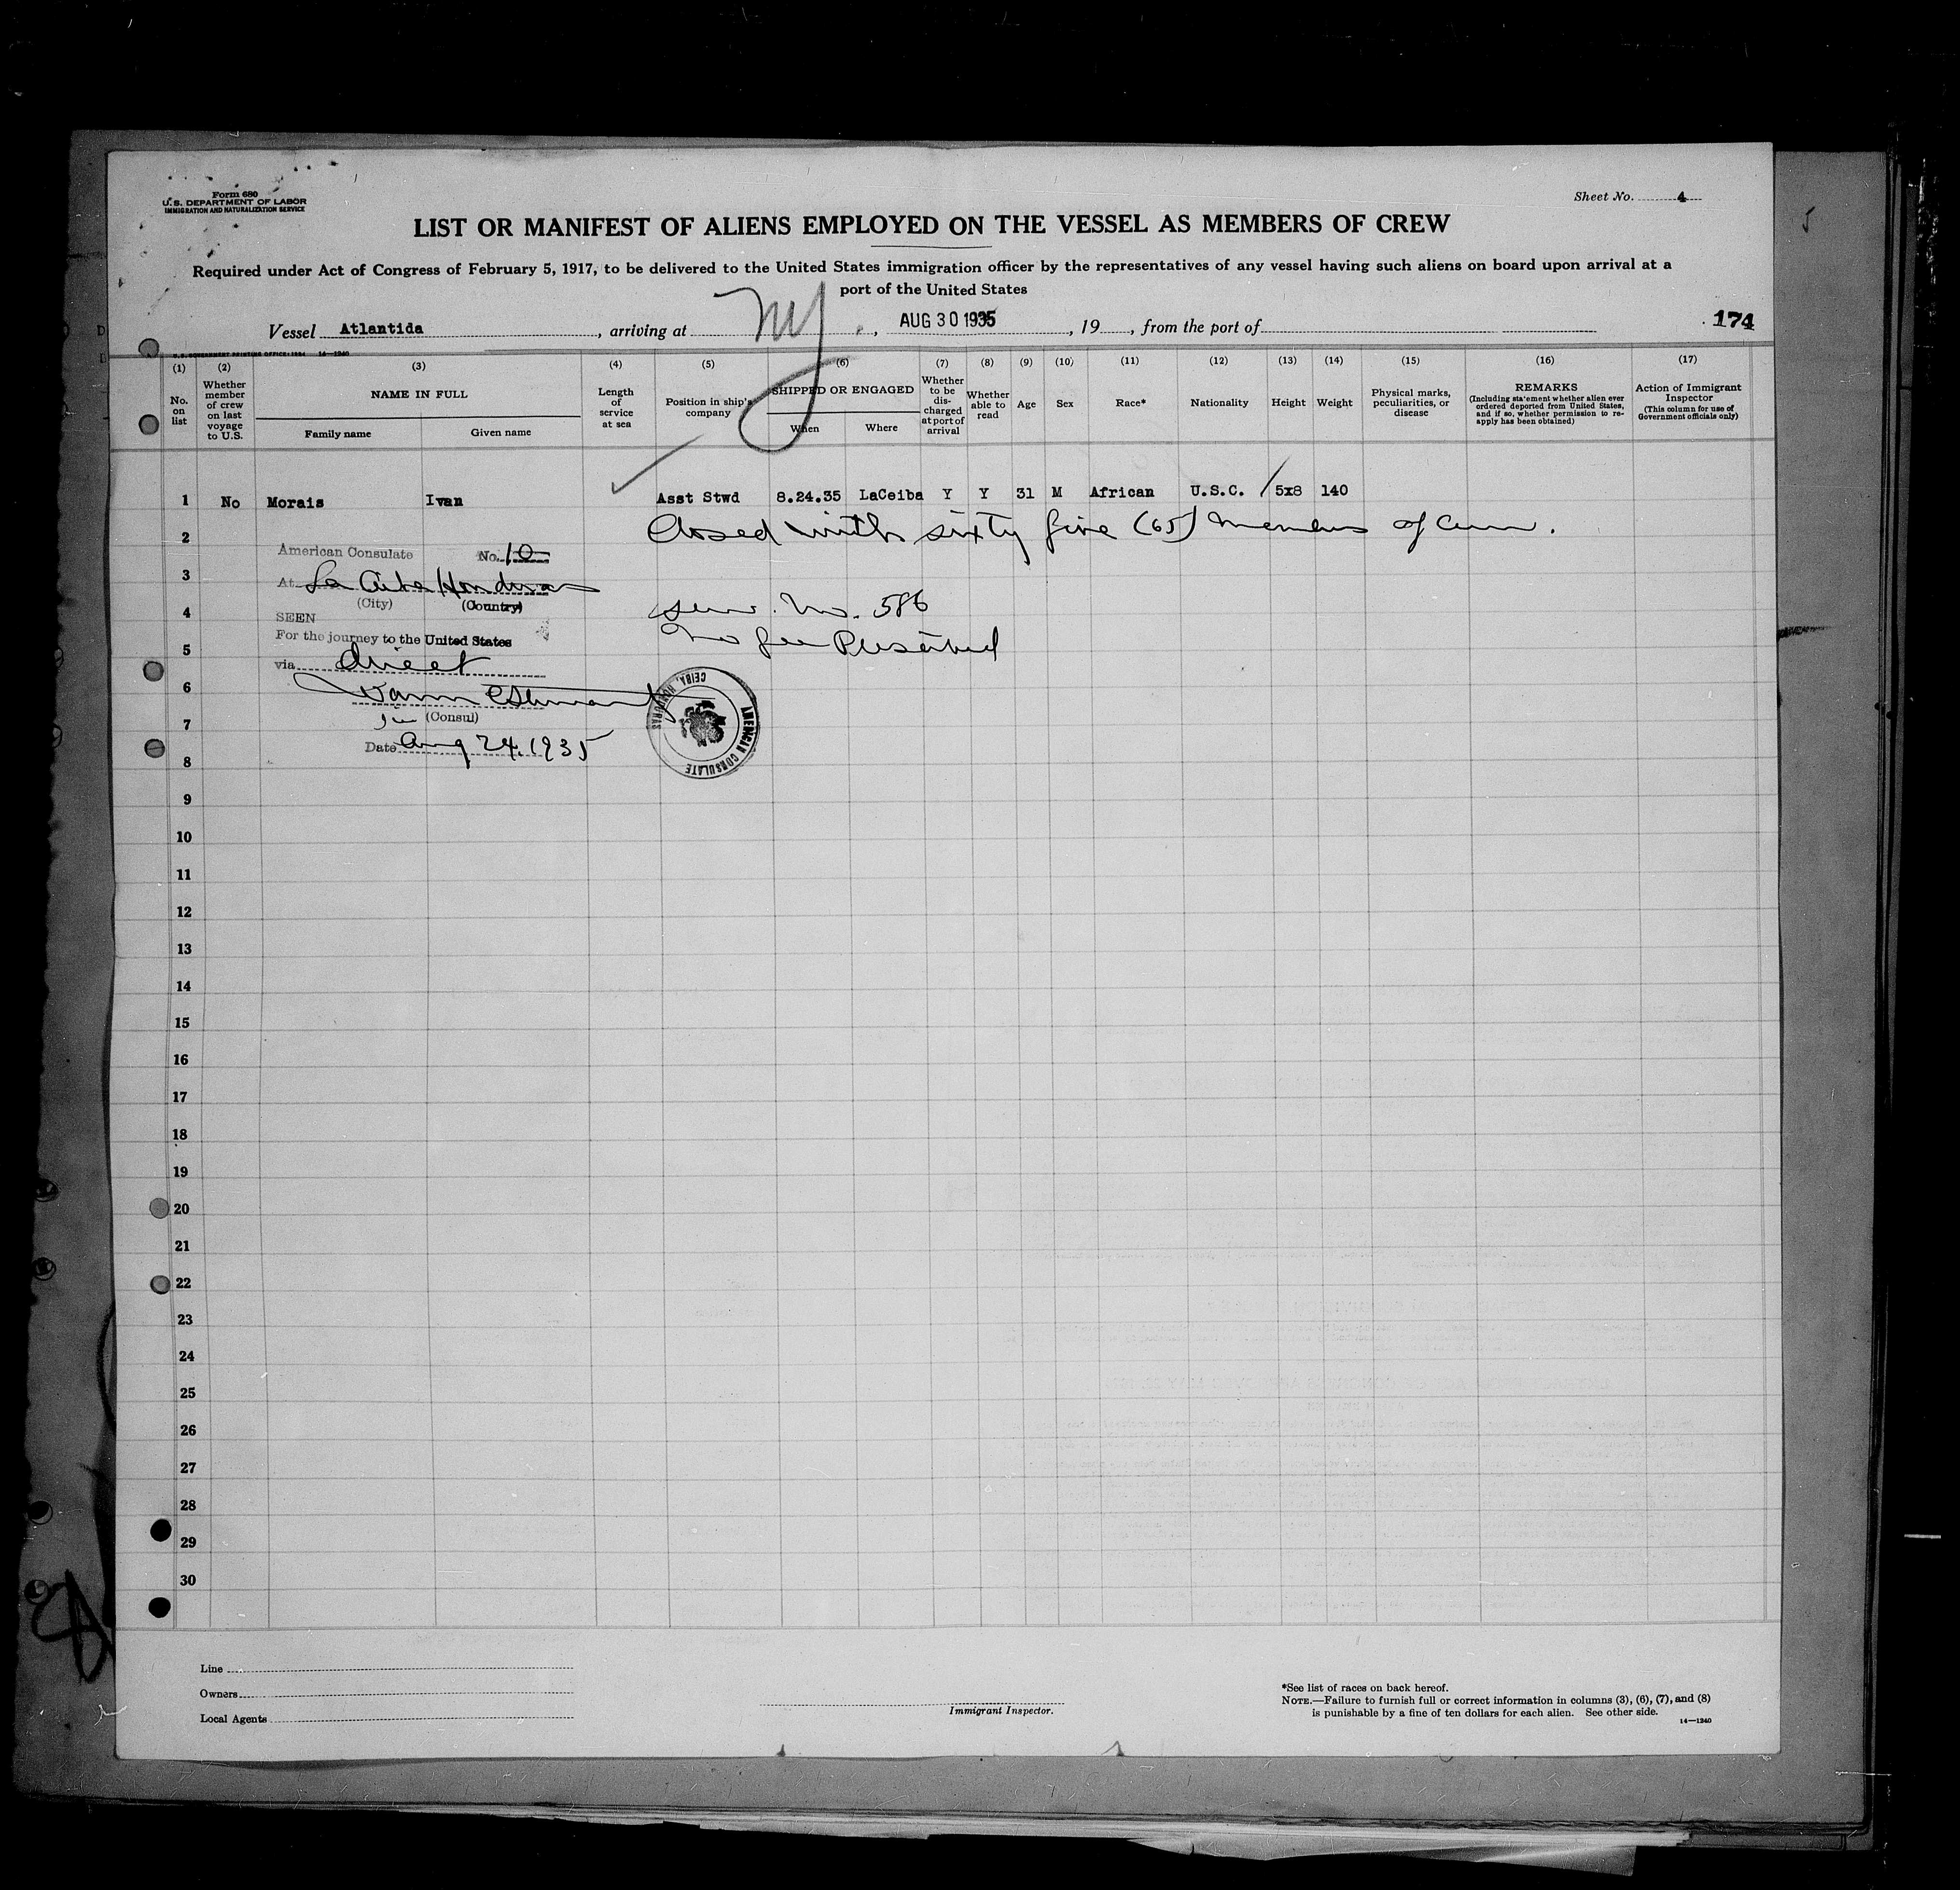 Form 680
U.S. DEPARTMENT OF LABOR
IMMIGRATION AND NATURALIZATION SERVICE
Sheet No. 4
5
LIST OR MANIFEST OF ALIENS EMPLOYED ON THE VESSEL AS MEMBERS OF CREW
Required under Act of Congress of February 5, 1917, to be delivered to the United States immigration officer by the representatives of any vessel having such aliens on board upon arrival at a
port of the United States
Vessel Atlantida, arriving at NY., AUG 30 1935, 19, from the port of
174
U.S. GOVERNMENT PRINTING OFFICE: 1934 14—1240
(1) (2) (3) (4) (5) (6) (7) (8) (9) (10) (11) (12) (13) (14) (15) (16) (17)
No. on list
Whether member of crew on last voyage to U.S.
NAME IN FULL
Family name Given name
Length of service at sea
Position in ship's company
SHIPPED OR ENGAGED
When Where
Whether to be discharged at port of arrival
Whether able to read
Age
Sex
Race*
Nationality
Height
Weight
Physical marks, peculiarities, or disease
REMARKS
(Including statement whether alien ever ordered deported from United States, and if so, whether permission to reapply has been obtained)
Action of Immigrant Inspector
(This column for use of Government officials only)
1 No Morais Ivan Asst Stwd 8.24.35 LaCeiba Y Y 31 M African U.S.C. 5x8 140
2 Closed with sixty five (65) members of crew.
American Consulate No. 10
3 At La Ceiba Honduras
(City) (Country)
4 Serv. No. 586
SEEN
For the journey to the United States
5 No fee Prescribed
via direct
6
7
(Consul)
Date Aug 24, 1935
AMERICAN CONSULATE
CEIBA, HONDURAS
8
9
10
11
12
13
14
15
16
17
18
19
20
21
22
23
24
25
26
27
28
29
30
Line
Owners
Local Agents
Immigrant Inspector.
*See list of races on back hereof.
NOTE.—Failure to furnish full or correct information in columns (3), (6), (7), and (8)
is punishable by a fine of ten dollars for each alien. See other side.
14—1240